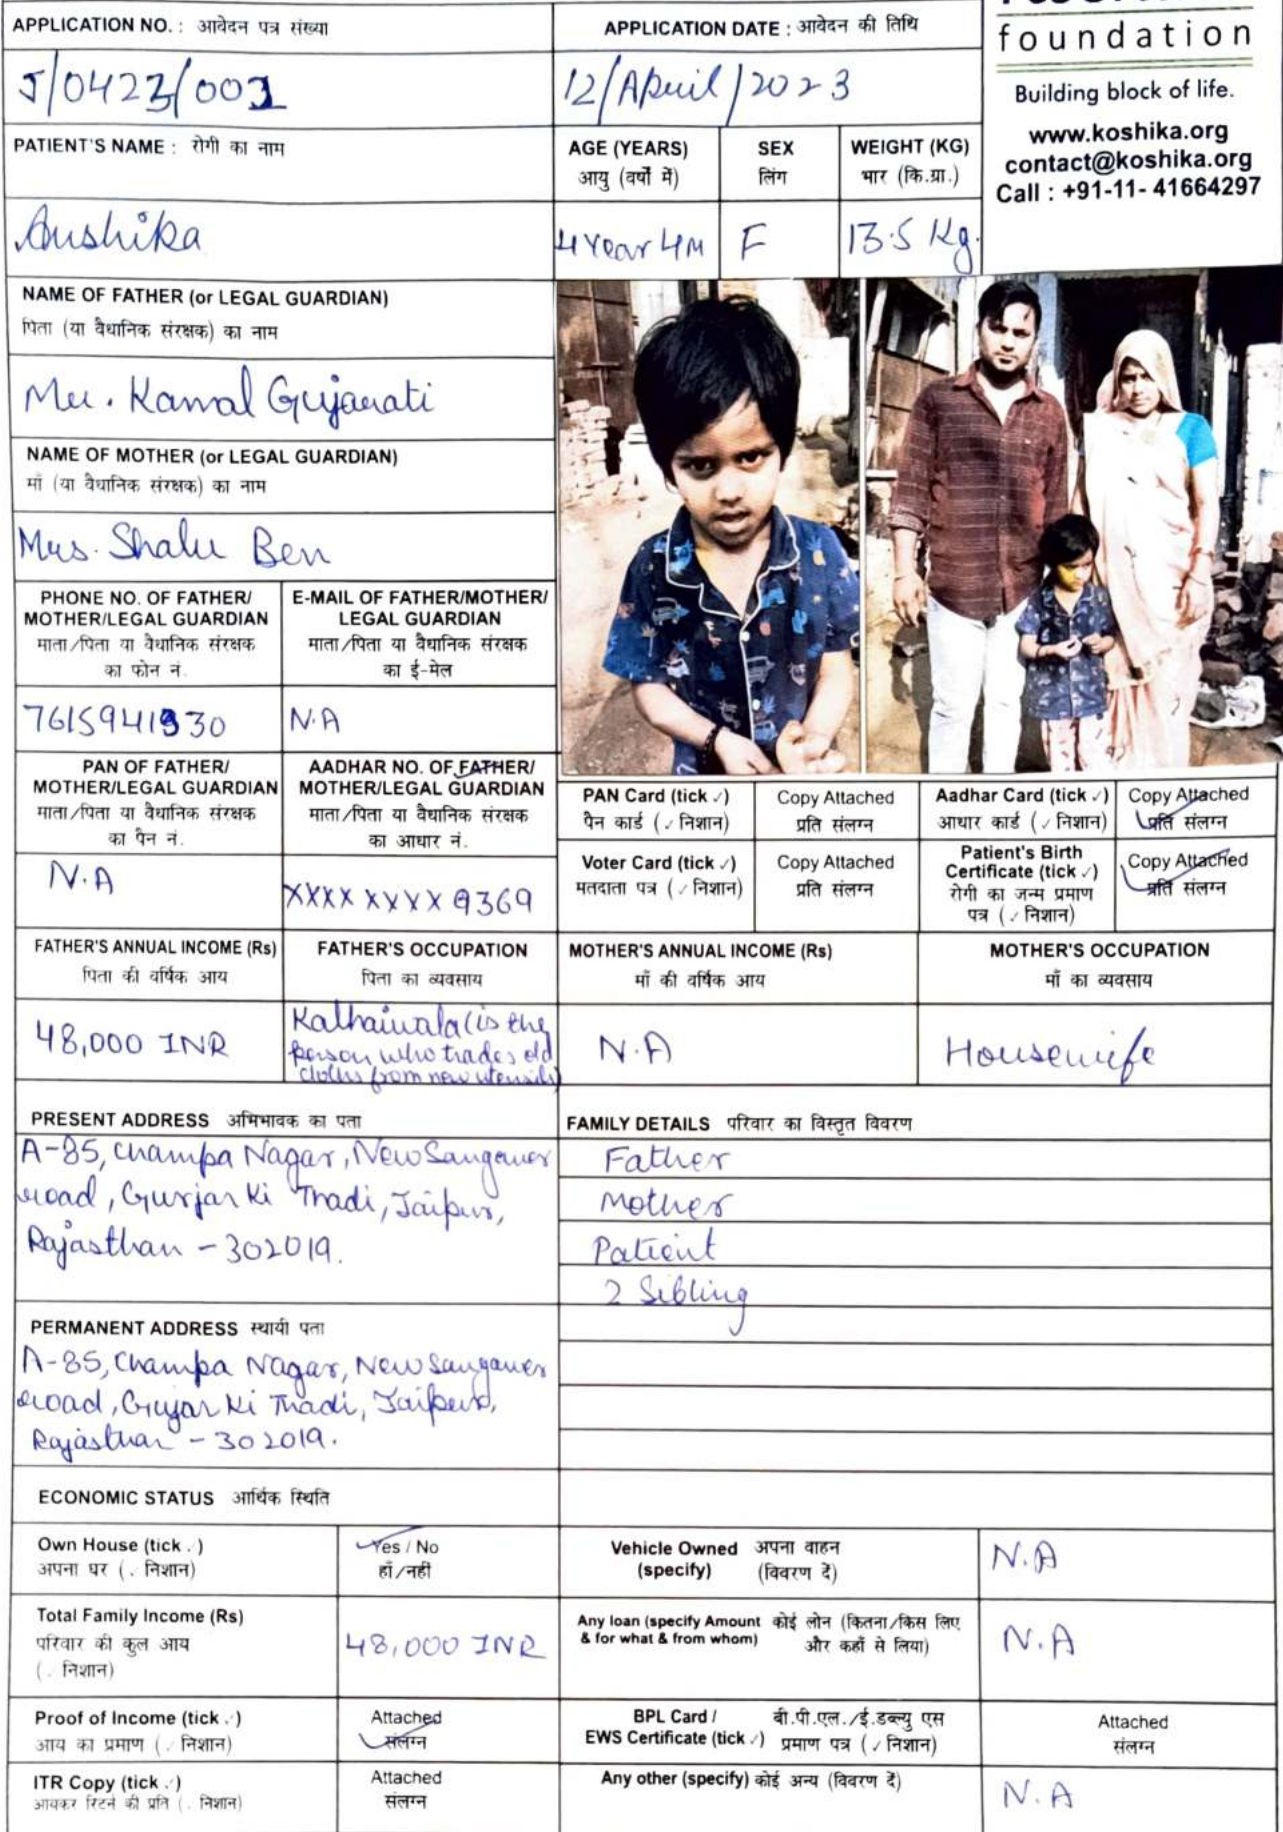 foundation
Building block of life.
www.koshika.org
contact@koshika.org
Call : +91-11- 41664297
APPLICATION NO. : आवेदन पत्र संख्या
J/0423/001
APPLICATION DATE : आवेदन की तिथि
12/April/2023
PATIENT'S NAME : रोगी का नाम
Anshika
AGE (YEARS)
आयु (वर्षों में)
4 Year 4M
SEX
लिंग
F
WEIGHT (KG)
भार (कि.ग्रा.)
13.5 Kg.
NAME OF FATHER (or LEGAL GUARDIAN)
पिता (या वैधानिक संरक्षक) का नाम
Mr. Kamal Gujarati
NAME OF MOTHER (or LEGAL GUARDIAN)
माँ (या वैधानिक संरक्षक) का नाम
Mrs. Shalu Ben
PHONE NO. OF FATHER/
MOTHER/LEGAL GUARDIAN
माता/पिता या वैधानिक संरक्षक
का फोन नं.
7615941930
E-MAIL OF FATHER/MOTHER/
LEGAL GUARDIAN
माता/पिता या वैधानिक संरक्षक
का ई-मेल
N.A
PAN OF FATHER/
MOTHER/LEGAL GUARDIAN
माता/पिता या वैधानिक संरक्षक
का पैन नं.
N.A
AADHAR NO. OF FATHER/
MOTHER/LEGAL GUARDIAN
माता/पिता या वैधानिक संरक्षक
का आधार नं.
XXXX XXXX 9369
PAN Card (tick ✓)
पैन कार्ड (✓ निशान)
Copy Attached
प्रति संलग्न
Aadhar Card (tick ✓)
आधार कार्ड (✓ निशान)
Copy Attached
प्रति संलग्न
Voter Card (tick ✓)
मतदाता पत्र (✓ निशान)
Copy Attached
प्रति संलग्न
Patient's Birth
Certificate (tick ✓)
रोगी का जन्म प्रमाण
पत्र (✓ निशान)
Copy Attached
प्रति संलग्न
FATHER'S ANNUAL INCOME (Rs)
पिता की वर्षिक आय
48,000 INR
FATHER'S OCCUPATION
पिता का व्यवसाय
Kathaiwala (is the
person who trades old
cloths from new utensils)
MOTHER'S ANNUAL INCOME (Rs)
माँ की वर्षिक आय
N.A
MOTHER'S OCCUPATION
माँ का व्यवसाय
Housewife
PRESENT ADDRESS अभिभावक का पता
A-85, Champa Nagar, New Sanganer
road, Gurjar Ki Thadi, Jaipur,
Rajasthan - 302019.
FAMILY DETAILS परिवार का विस्तृत विवरण
Father
Mother
Patient
2 Sibling
PERMANENT ADDRESS स्थायी पता
A-85, Champa Nagar, New Sanganer
road, Gujar Ki Thadi, Jaipur,
Rajasthan - 302019.
ECONOMIC STATUS आर्थिक स्थिति
Own House (tick ✓)
अपना घर (✓ निशान)
Yes / No
हाँ/नहीं
Vehicle Owned अपना वाहन
(specify) (विवरण दें)
N.A
Total Family Income (Rs)
परिवार की कुल आय
(✓ निशान)
48,000 INR
Any loan (specify Amount कोई लोन (कितना/किस लिए
& for what & from whom) और कहाँ से लिया)
N.A
Proof of Income (tick ✓)
आय का प्रमाण (✓ निशान)
Attached
संलग्न
BPL Card / बी.पी.एल./ई.डब्ल्यु एस
EWS Certificate (tick ✓) प्रमाण पत्र (✓ निशान)
Attached
संलग्न
ITR Copy (tick ✓)
आयकर रिटर्न की प्रति (✓ निशान)
Attached
संलग्न
Any other (specify) कोई अन्य (विवरण दें)
N.A